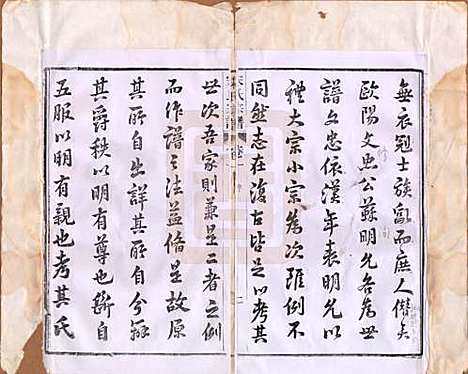 無衣冠士族亂而庶人僭矣
歐陽文忠公蘇明允各為世
譜文忠依漢年表明允以
禮大宗小宗為次雖例不
同然志在復古皆足以考其
世次吾家則兼是二者之例
而作譜之法益脩是故原
其所自出詳其所自分
其爵秩以明有尊也斷自
五服以明有親也考其氏